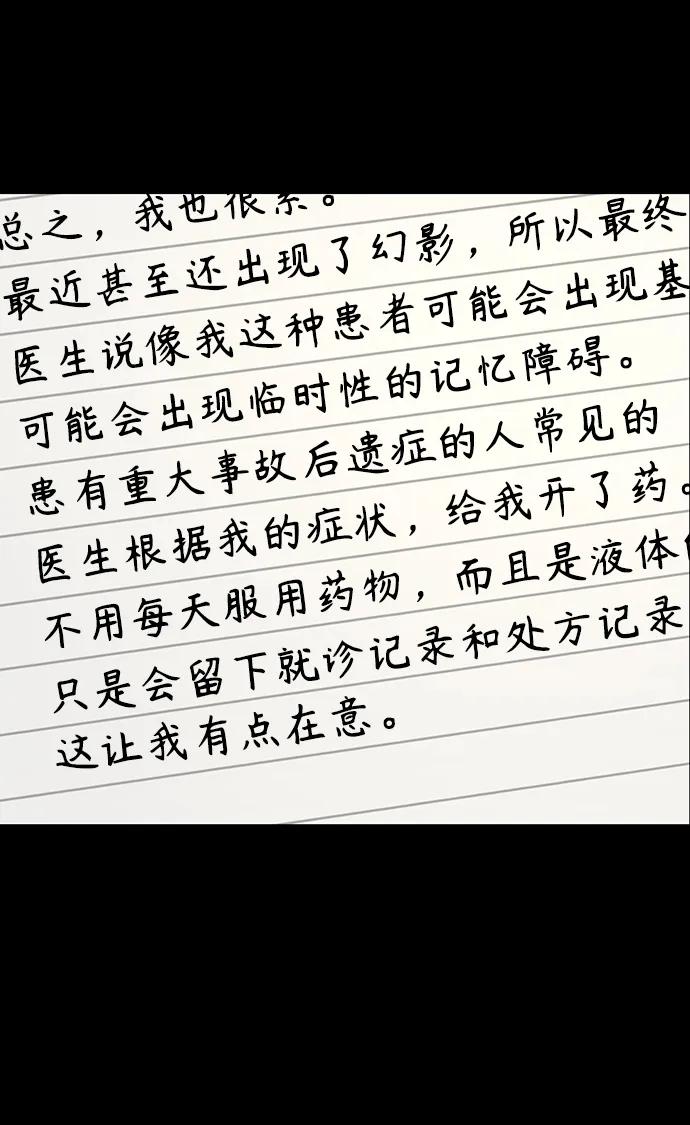 总之，我也很累。
最近甚至还出现了幻影，所以最终
医生说像我这种患者可能会出现基
可能会出现临时性的记忆障碍。
患有重大事故后遗症的人常见的
医生根据我的症状，给我开了药。
不用每天服用药物，而且是液体
只是会留下就诊记录和处方记录
这让我有点在意。